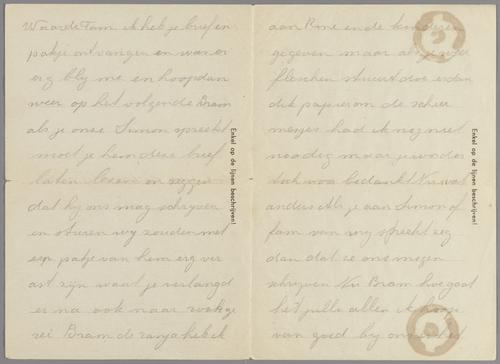 Waarde Fam ik heb je brief en
pakje ontvangen en was er
erg bly me en hoop dan
weer op het volgende Bram
als je onze Simon spreekt
moet je hem deze brief
laten lezen en zeggen
dat hy ons mag schryven
en sturen wy zouden met
een pakje van hem erg ver
ast zyn want je verlangd
er na ook naar
zei Bram de ranja heb ik
Enkel op de lijnen beschrijven!
aan Rne en de kinderen
gegeven maar als je weer
flesschen stuurt doe er dan
dik papier om de scheer
mesjes had ik nog niet
noodig maar je worden
toch wel bedankt Nu wat
anders Als je aan Simon of
fam van my spreekt zeg
dan dat ze ons mogen
schryven Nu Bram hoe gaat
het jullie allen ik hoop
van goed by ons is het
Enkel op de lijnen beschrijven!